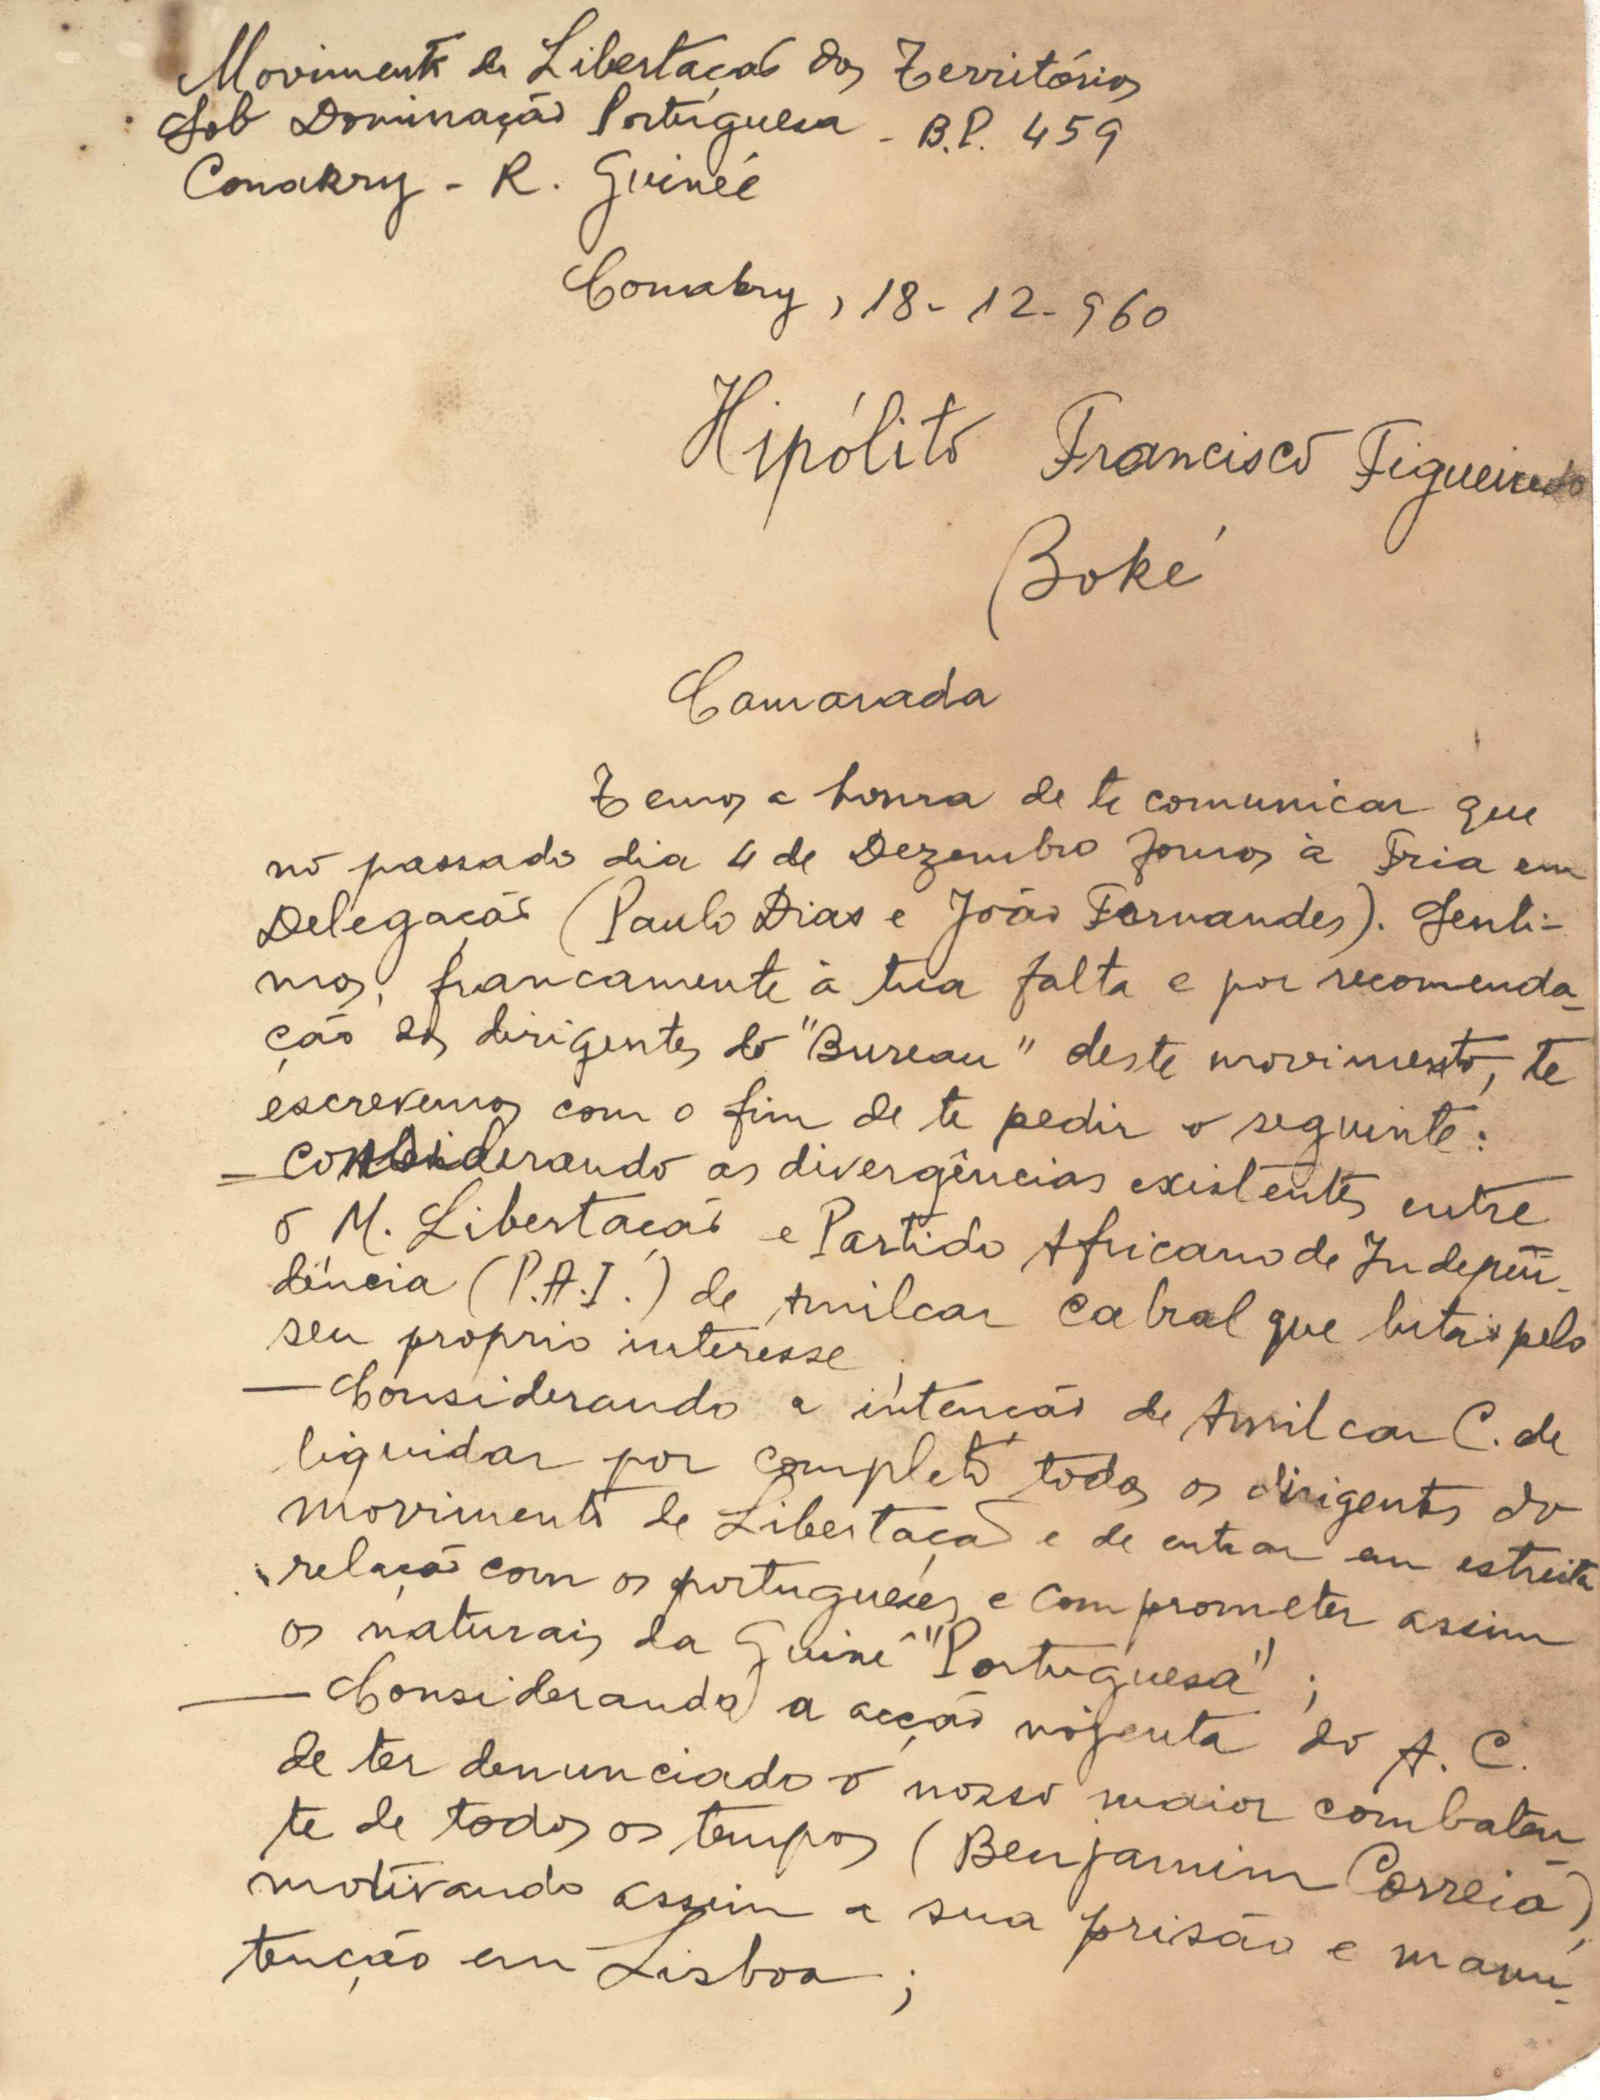 Movimento de Libertação dos Territórios
Sob Dominação Portuguesa - B.P. 459
Conakry - R. Guinée
Conakry, 18-12-960
Hipólito Francisco Figueiredo
Boké
Camarada
Temos a honra de te comunicar que
no passado dia 4 de Dezembro fomos à Fria em
Delegação (Paulo Dias e João Fernandes). Senti-
mos, francamente à tua falta e por recomenda-
ção dos dirigentes do "Bureau" deste movimento, te
escrevemos com o fim de te pedir o seguinte:
= Considerando as divergências existentes entre
o M. Libertação e Partido Africano de Indepen-
dência (P.A.I.) de Amilcar Cabral que luta pelo
seu proprio interesse;
— Considerando a intenção de Amilcar C. de
liquidar por completo todos os dirigentes do
movimento de Libertação e de entrar em estreita
relação com os portugueses e comprometer assim
os naturais da Guiné "Portuguesa";
— Considerando a acção nojenta do A. C.
de ter denunciado o nosso maior combaten-
te de todos os tempos (Benjamim Correia)
motivando assim a sua prisão e manu-
tenção em Lisboa;